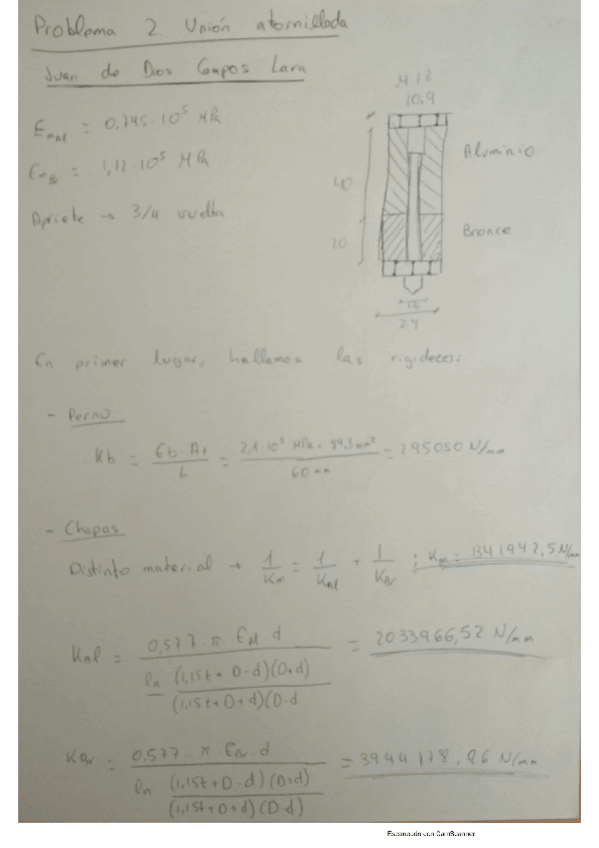 Problema 2 Unión atornillada
Juan de Dios Campos Lara
M12
10.9
E_mAl = 0,745·10⁵ MPa
E_mBr = 1,12·10⁵ MPa
Apriete → 3/4 vuelta
40
20
Aluminio
Bronce
16
24
En primer lugar, hallamos las rigideces:
- Perno
Kb = Eb · At / L = 2,1·10⁵ MPa · 84,3 mm² / 60 mm = 295050 N/mm
- Chapas
Distinto material → 1/Km = 1/KAl + 1/KBr ; Km = 1341942,5 N/mm
KAl = 0,577·π·EAl·d / ln (1,15t + D-d)(D+d) / (1,15t+D+d)(D-d = 2033966,52 N/mm
KBr = 0,577·π·EBr·d / ln (1,15t+D-d)(D+d) / (1,15t+D+d)(D-d) = 3944178,96 N/mm
Escaneado con CamScanner